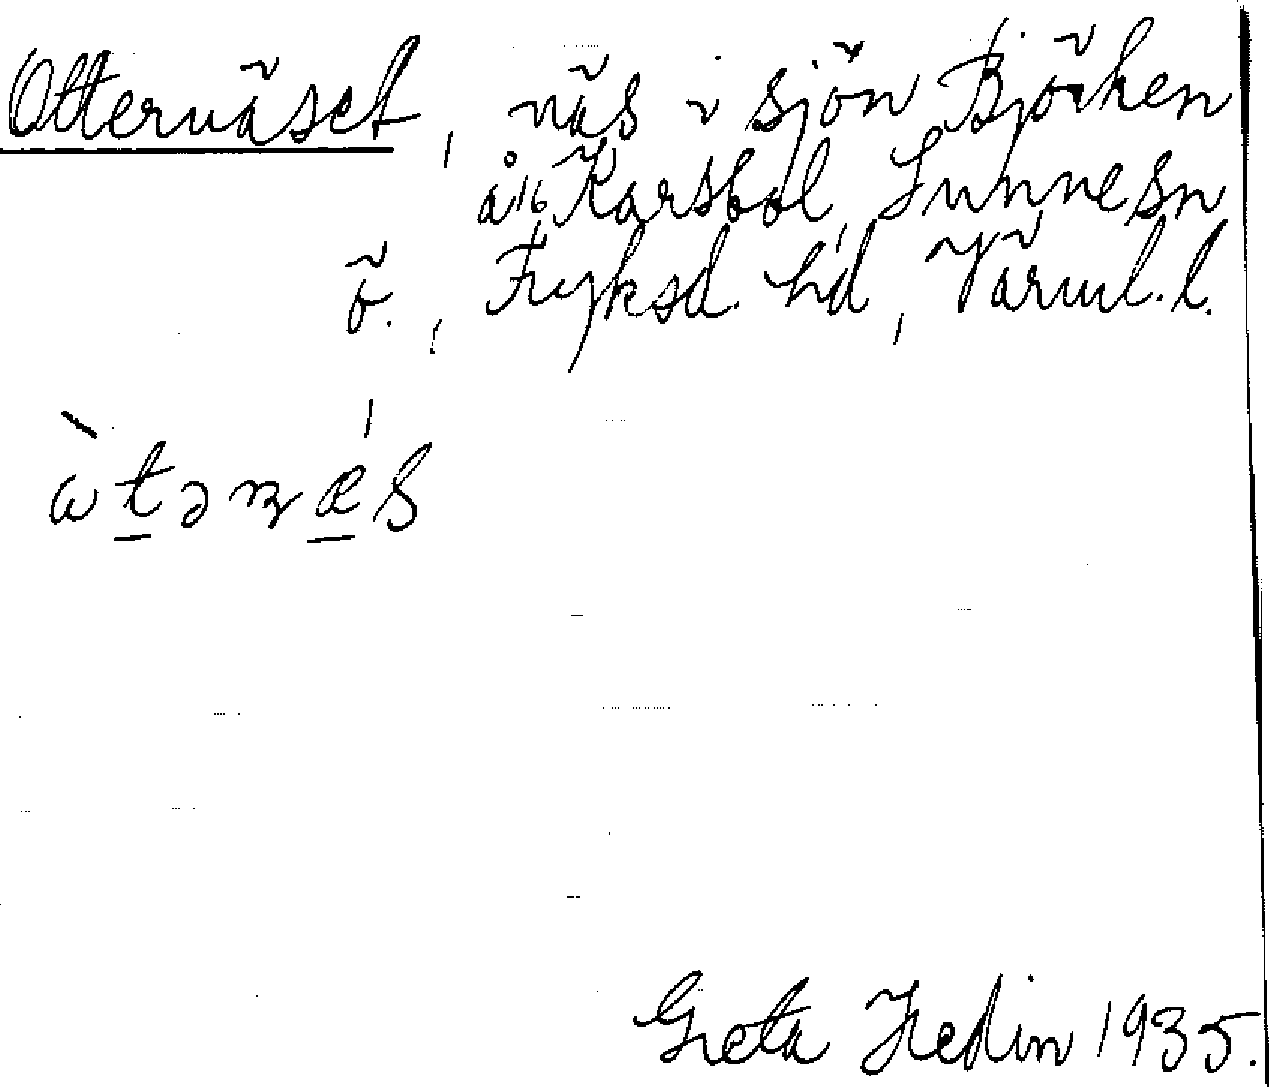 Otternäset, näs i sjön Björken
å 16 Karsbol, Sunne sn
ö., Fryksd. hd, Värml. l.
ὼtənæ´s
Greta Hedin 1935.